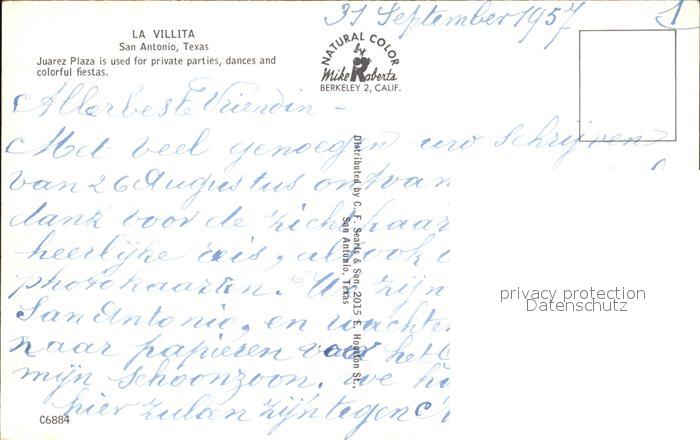 31 September 1957
1
LA VILLITA
San Antonio, Texas
Juarez Plaza is used for private parties, dances and
colorful fiestas.
NATURAL COLOR
by
Mike Roberts
BERKELEY 2, CALIF.
Allerbeste Vriendin -
Met veel genoegen uw schrijven
van 26 Augustus ontvan
dank voor de zichtkaar
heerlijke reis, alook
photokaarten. We zijn
San Antonio, en wachten
naar papieren voor het
mijn schoonzoon. We
hier zullen zijn tegen
Distributed by C. F. Searls & Son, 2015 E. Houston St.,
San Antonio, Texas
privacy protection
Datenschutz
C6884